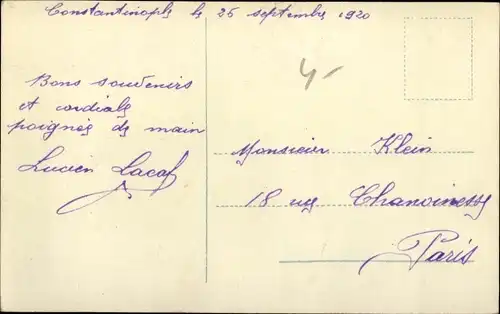 Constantinople le 25 septembre 1920
4-
Bons souvenirs
et cordiale
poignée de main
Lucien Lacaf
Monsieur Klein
18 rue Chanoinesse
Paris